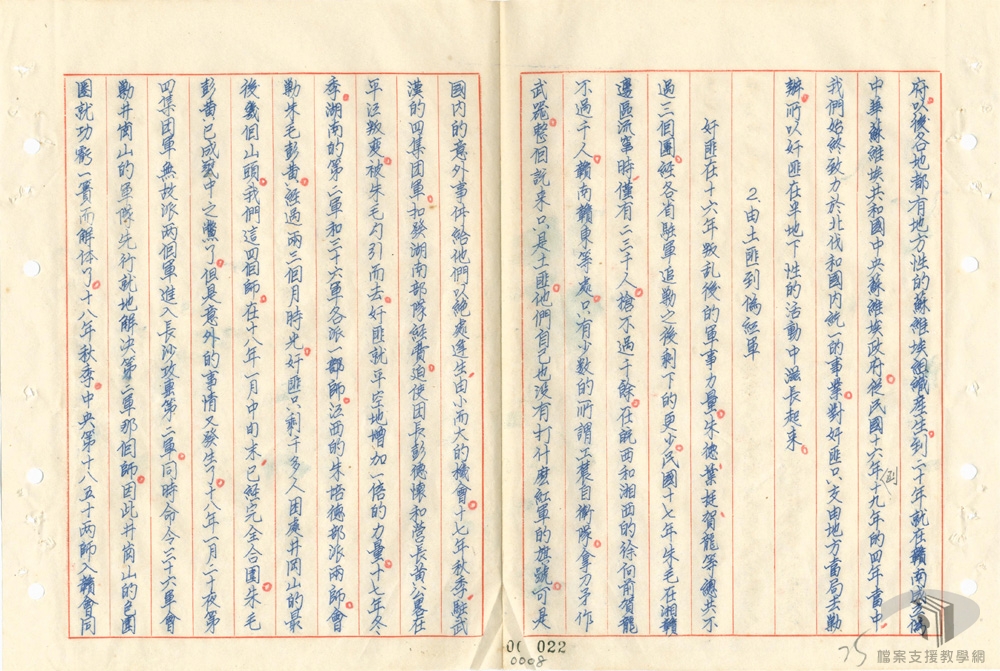 府。以後各地都有地方性的蘇維埃組織產生。到二十年就在贛南成立偽
中華蘇維埃共和國中央蘇維埃政府。從民國十六年到十九年的四年當中。
我們始終致力於北伐和國內統一的事業。對奸匪只交由地方當局去勦
辦。所以奸匪在半地下性的活動中滋長起來。
2.由土匪到偽紅軍
奸匪在十六年叛乱後的軍事力量。朱德葉挺賀龍等總共不
過三個團。經各省駐軍追勦之後剩下的更少。民國十七年朱毛在湘贛
邊區流竄時僅有二三千人。槍不過千餘。在鄂西和湘西的徐向前賀龍
不過千人。贛南贛東等處。只有少數的所謂工農自衛隊。拿刀矛作
武器。整個說來只是土匪。他們自己也沒有打什麼紅軍的旗號。可是
國內的意外事件給他們以絕處逢生由小而大的機會。十七年秋季。駐武
漢的四集团軍。扣發湖南部隊經費。迫使团長彭德懷和營長黃公畧在
平江叛變。被朱毛勾引而去。奸匪就平空地增加一倍的力量。十七年冬
季。湖南的第二軍和三十六軍各派一部師。江西的朱培德部派兩師。會
勦朱毛彭黃。經過一兩三個月時光。奸匪只剩千多人。困處井岡山的最
後幾個山頭。我們這四個師。在十八年一月中旬末。已經完全合圍。朱毛
彭黃已成甕中之鱉了。但是意外的事情又發生了。十八年一月二十夜。第
四集团軍無故派兩個軍進入長沙攻襲第二軍。同時命令三十六軍會
勦井崗山的軍隊先行就地解決第二軍那個師。因此井崗山的包圍
圈就功虧一簣而解体了。十八年秋季。中央第十八五十兩師入贛會同
00 022
0008
25
檔案支援教學網